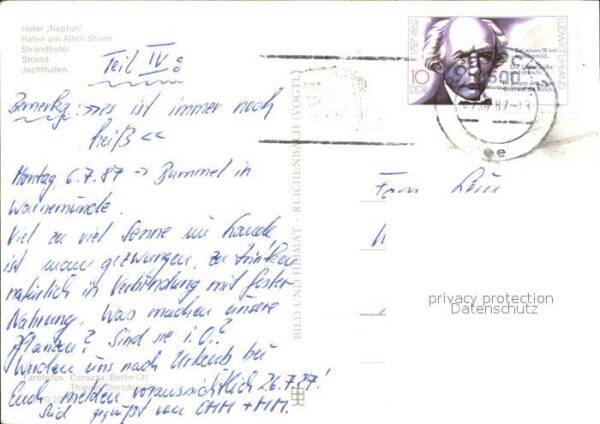 Hotel „Neptun"
Hafen am Alten Strom
Strandhotel
Strand
Jachthafen
Teil IV:
Bemerkg.: >> es ist immer noch
heiß <<
Montag, 6.7.87 -> Bummel in
Warnemünde.
Viel zu viel Sonne im Lande
ist man gezwungen, zu trinken
natürlich in Verbindung mit fester
Nahrung. Was machen unsere
Pflanzen? Sind sie i.O.?
Werden uns nach Urlaub bei
Euch melden voraussichtlich 26.7.87!
Seid gegrüßt von CHH + MM.
Farbfotos: Corazza, Berlin (3)
Thieme, Dresden
BILD UND HEIMAT · REICHENBACH (VOGTL)
1787-1862
LUDWIG UHLAND
Bei einem Wirte
wundermild...
10
DDR
2500
87-13
Fam.
privacy protection
Datenschutz